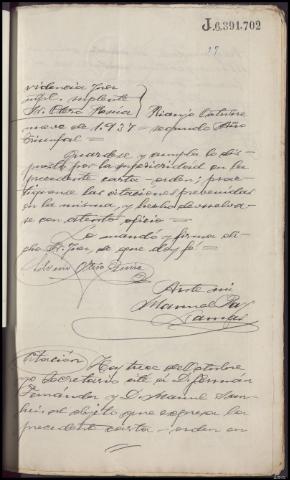 J.6.391.702
Providencia Juez
mpl. suplente
Sr. Otero Rania Rianjo Octubre
nueve de 1.937 = segundo Año
triunfal =
Guardese y cumpla lo dis-
puesto por la superioridad en la
precedente carta-orden; prac-
tiquense las citaciones prevenidas
en la misma, y hecho devuelva-
se con atento oficio =
Lo mandó y firma di-
cho Sr. Juez, de que doy fé =
Otero
Ante mi
Manuel
Citación Hoy trece de Octubre
yo Secretario cité á D. Germán
Fernández y D. Manuel
al objeto que expresa la
precedente carta-orden en